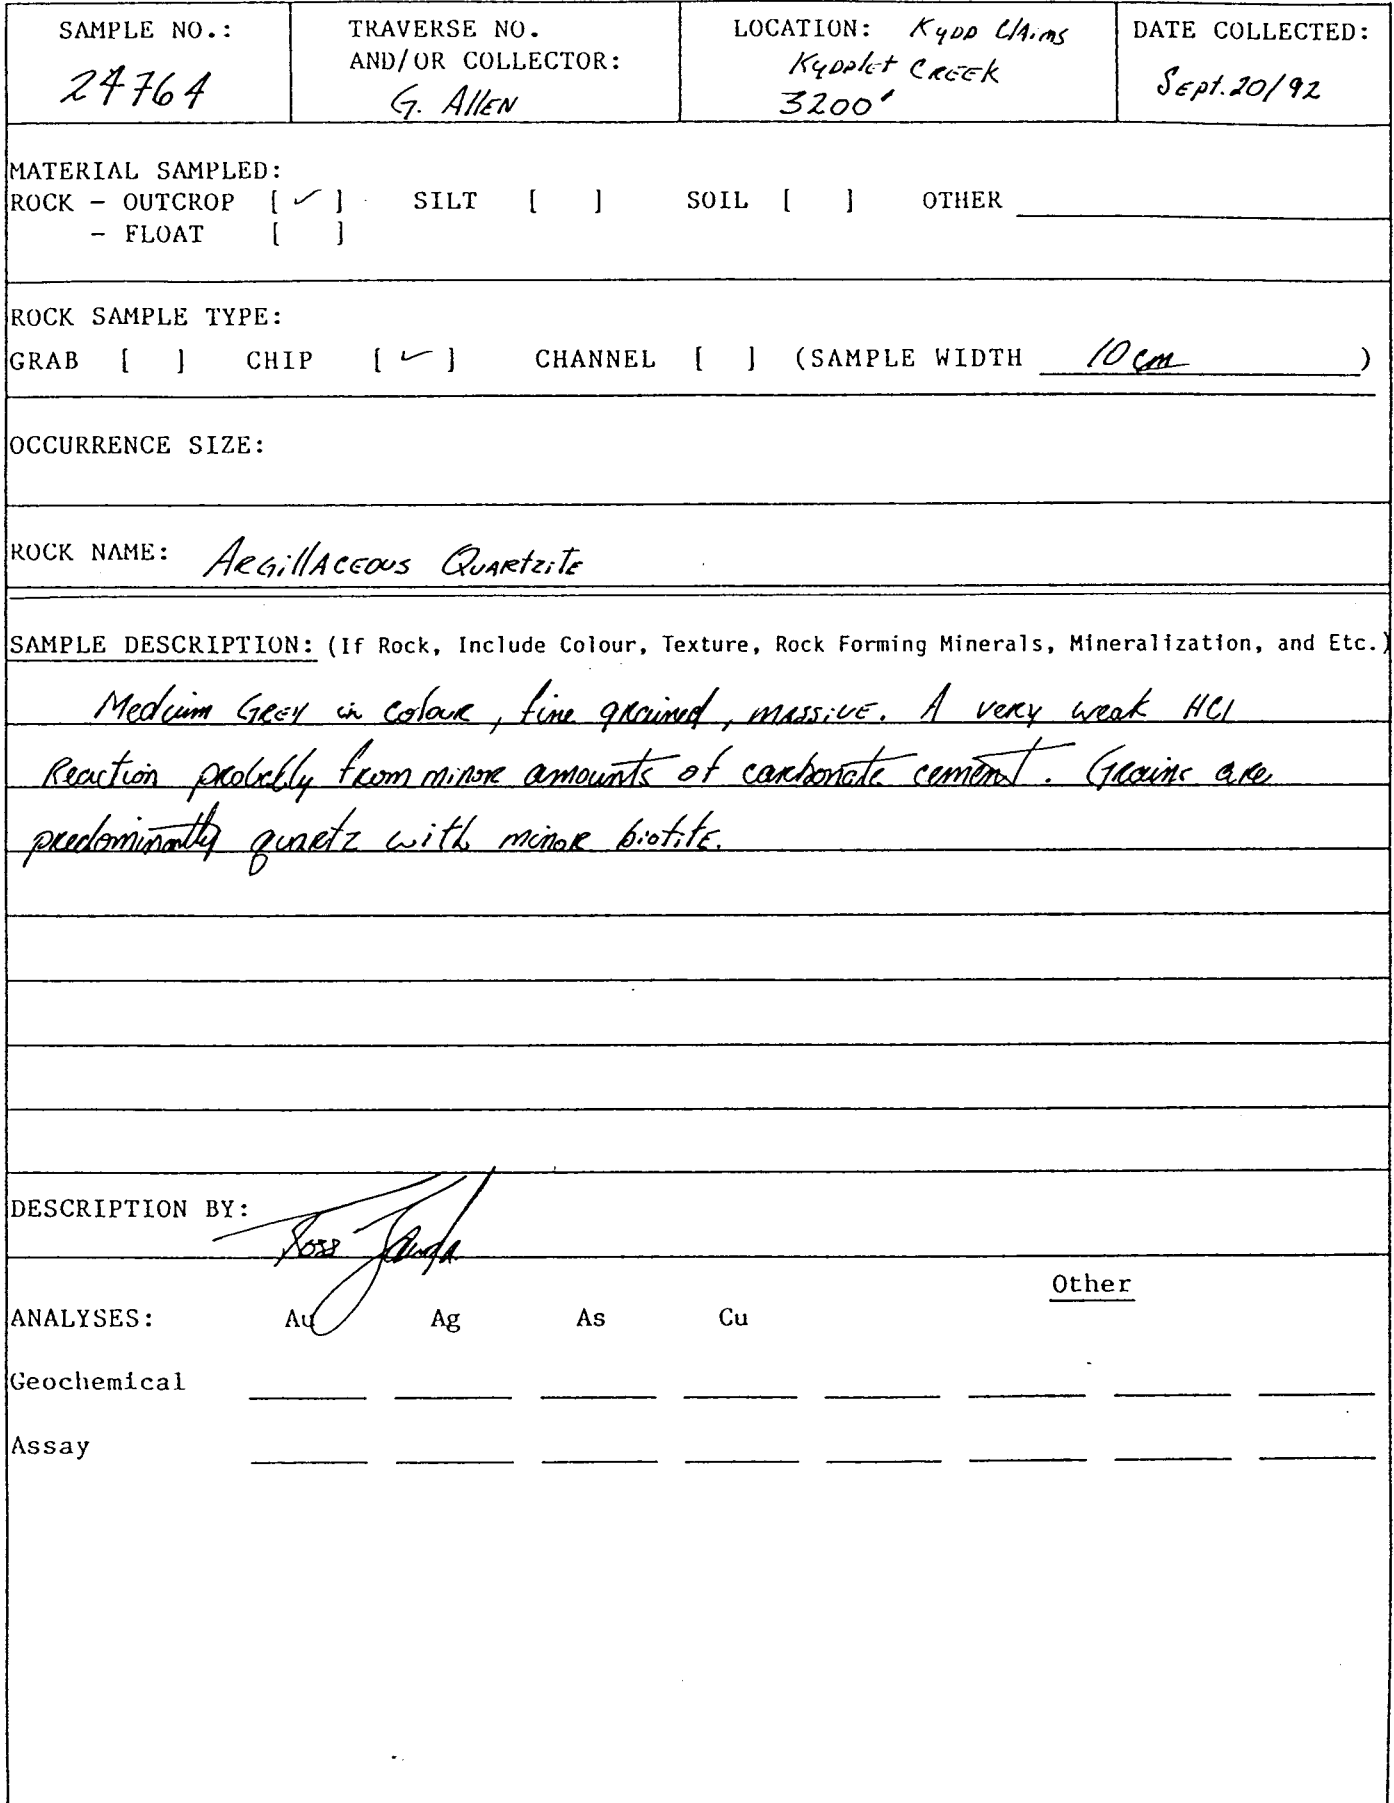 SAMPLE NO.:
24764
TRAVERSE NO.
AND/OR COLLECTOR:
G. Allen
LOCATION: Kydd Claims
Kydplet Creek
3200'
DATE COLLECTED:
Sept. 20/92
MATERIAL SAMPLED:
ROCK – OUTCROP [ ✓ ] SILT [ ] SOIL [ ] OTHER
– FLOAT [ ]
ROCK SAMPLE TYPE:
GRAB [ ] CHIP [ ✓ ] CHANNEL [ ] (SAMPLE WIDTH 10 cm )
OCCURRENCE SIZE:
ROCK NAME: Argillaceous Quartzite
SAMPLE DESCRIPTION: (If Rock, Include Colour, Texture, Rock Forming Minerals, Mineralization, and Etc.)
Medium Grey in colour, fine grained, massive. A very weak HCl
Reaction probably from minor amounts of carbonate cement. Grains are
predominantly quartz with minor biotite.
DESCRIPTION BY:
Ross
Other
ANALYSES: Au Ag As Cu
Geochemical
Assay